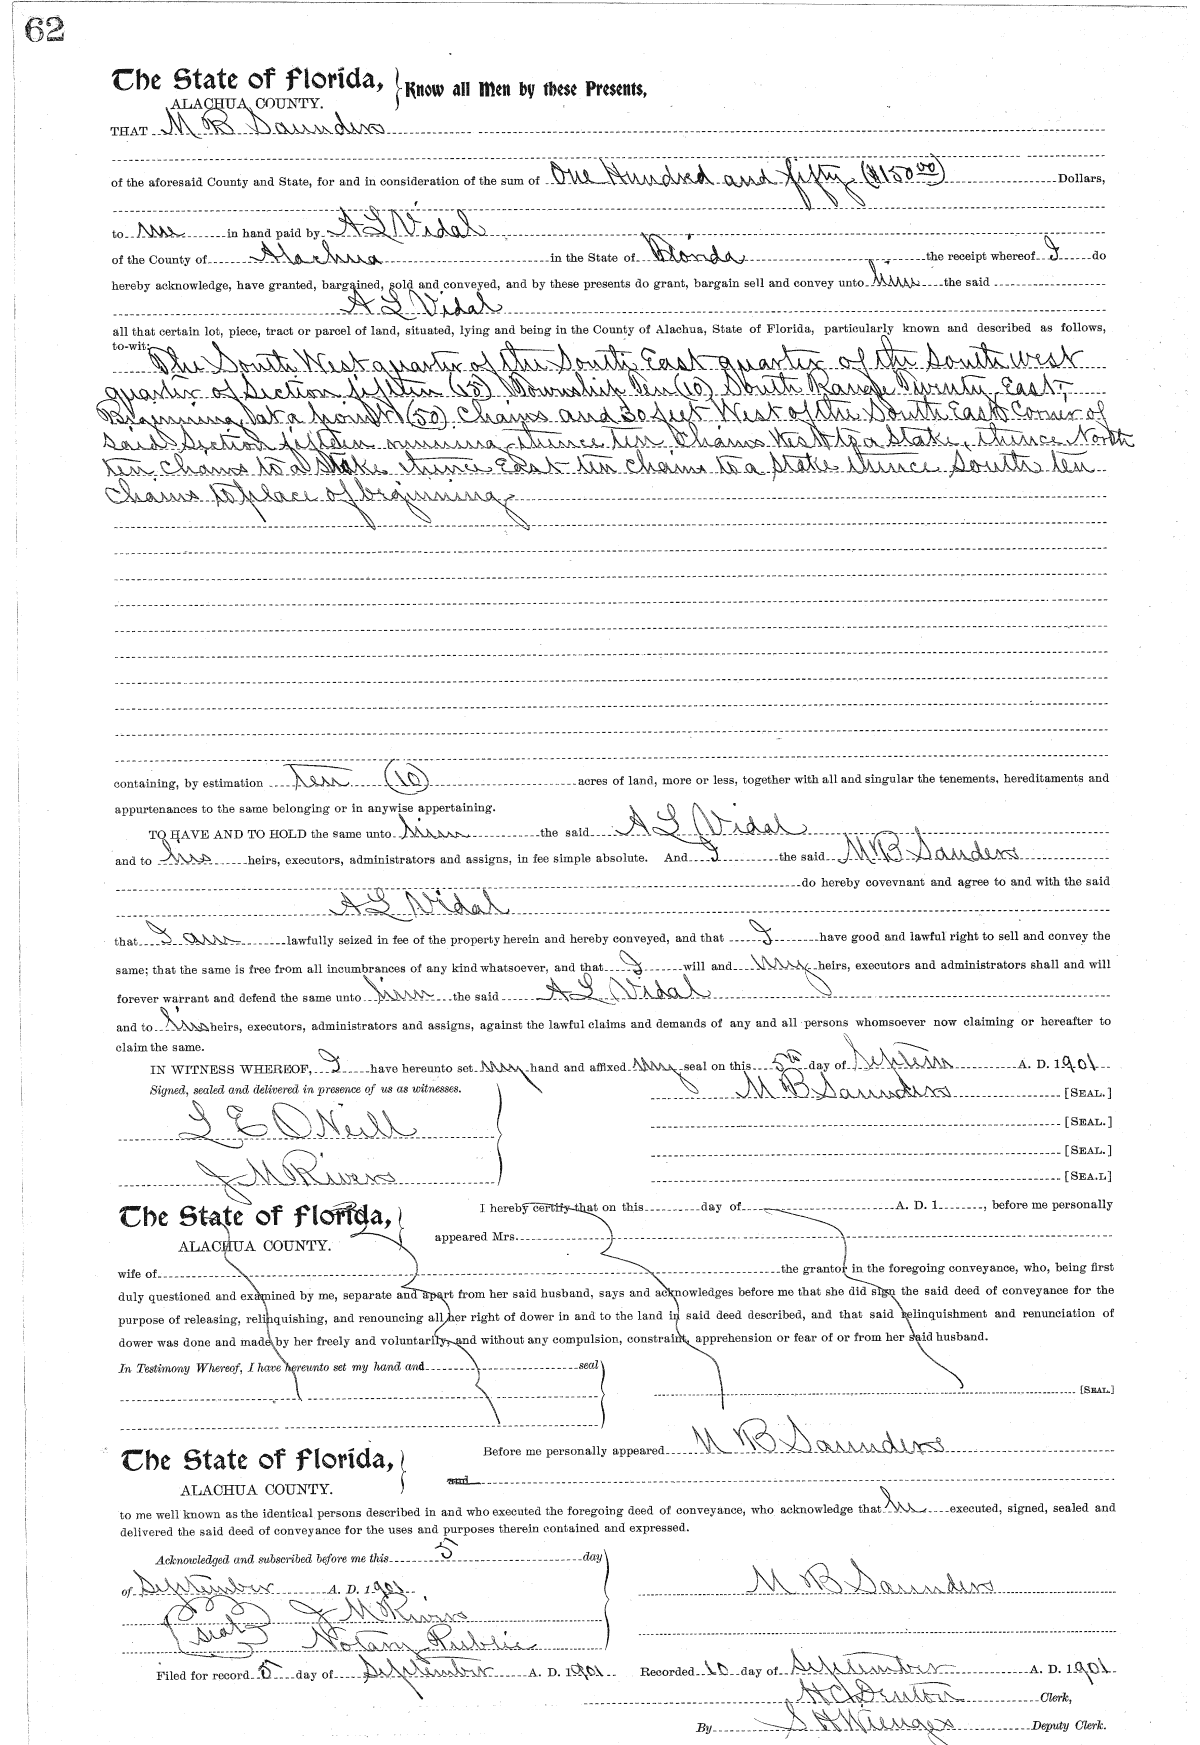 62
The State of Florida, Know all Men by these Presents,
ALACHUA COUNTY.
THAT M B Saunders
of the aforesaid County and State, for and in consideration of the sum of One Hundred and fifty ($150 00) Dollars,
to me in hand paid by A L Vidal
of the County of Alachua in the State of Florida the receipt whereof I do
hereby acknowledge, have granted, bargained, sold and conveyed, and by these presents do grant, bargain sell and convey unto him the said
A L Vidal
all that certain lot, piece, tract or parcel of land, situated, lying and being in the County of Alachua, State of Florida, particularly known and described as follows,
to-wit:
The South West quarter of the South East quarter of the South west
quarter of Section fifteen (15) Township Ten (10) South Range Twenty East,
Beginning at a point (50) Chains and 30 feet West of the South East Corner of
said Section fifteen running thence ten Chains West to a Stake, thence North
ten chains to a Stake thence East ten chains to a stake thence South ten
chains to place of beginning
containing, by estimation ten (10) acres of land, more or less, together with all and singular the tenements, hereditaments and
appurtenances to the same belonging or in anywise appertaining.
TO HAVE AND TO HOLD the same unto him the said A L Vidal
and to his heirs, executors, administrators and assigns, in fee simple absolute. And I the said M B Sanders
do hereby covevnant and agree to and with the said
A L Vidal
that I am lawfully seized in fee of the property herein and hereby conveyed, and that I have good and lawful right to sell and convey the
same; that the same is free from all incumbrances of any kind whatsoever, and that I will and my heirs, executors and administrators shall and will
forever warrant and defend the same unto him the said A L Vidal
and to his heirs, executors, administrators and assigns, against the lawful claims and demands of any and all persons whomsoever now claiming or hereafter to
claim the same.
IN WITNESS WHEREOF, I have hereunto set my hand and affixed my seal on this 5th day of Septem A. D. 1901
Signed, sealed and delivered in presence of us as witnesses. M B Saunders [SEAL.]
L E O'Neill [SEAL.]
[SEAL.]
J M Rivers [SEA.L]
The State of Florida, I hereby certify that on this day of A. D. 1 , before me personally
ALACHUA COUNTY. appeared Mrs.
wife of the grantor in the foregoing conveyance, who, being first
duly questioned and examined by me, separate and apart from her said husband, says and acknowledges before me that she did sign the said deed of conveyance for the
purpose of releasing, relinquishing, and renouncing all her right of dower in and to the land in said deed described, and that said relinquishment and renunciation of
dower was done and made by her freely and voluntarily, and without any compulsion, constraint, apprehension or fear of or from her said husband.
In Testimony Whereof, I have hereunto set my hand and seal
[SEAL.]
The State of Florida, Before me personally appeared M B Saunders
ALACHUA COUNTY. and
to me well known as the identical persons described in and who executed the foregoing deed of conveyance, who acknowledge that he executed, signed, sealed and
delivered the said deed of conveyance for the uses and purposes therein contained and expressed.
Acknowledged and subscribed before me this 5 day
of September A. D. 1901 M B Saunders
(seal) J M Rivers
Notary Public
Filed for record 5 day of September A. D. 1901 Recorded 10 day of September A. D. 1901
H C Denton Clerk,
By S H Wienges Deputy Clerk.